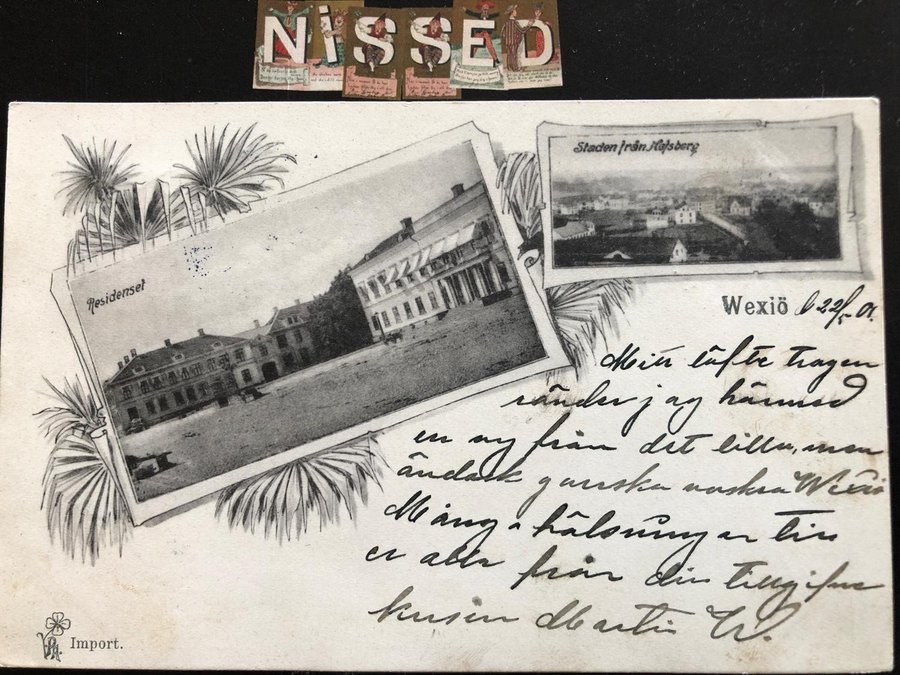 NiSSED
Staden från Hofsberg
Residenset
Wexiö d 22/5 01.
Mitt löfte trogen
sänder jag härmed
en ny från det lilla, men
ändock ganska vackra Wexiö
Många hälsningar till
er alla från din tillgifne
kusin Martin W.
Import.